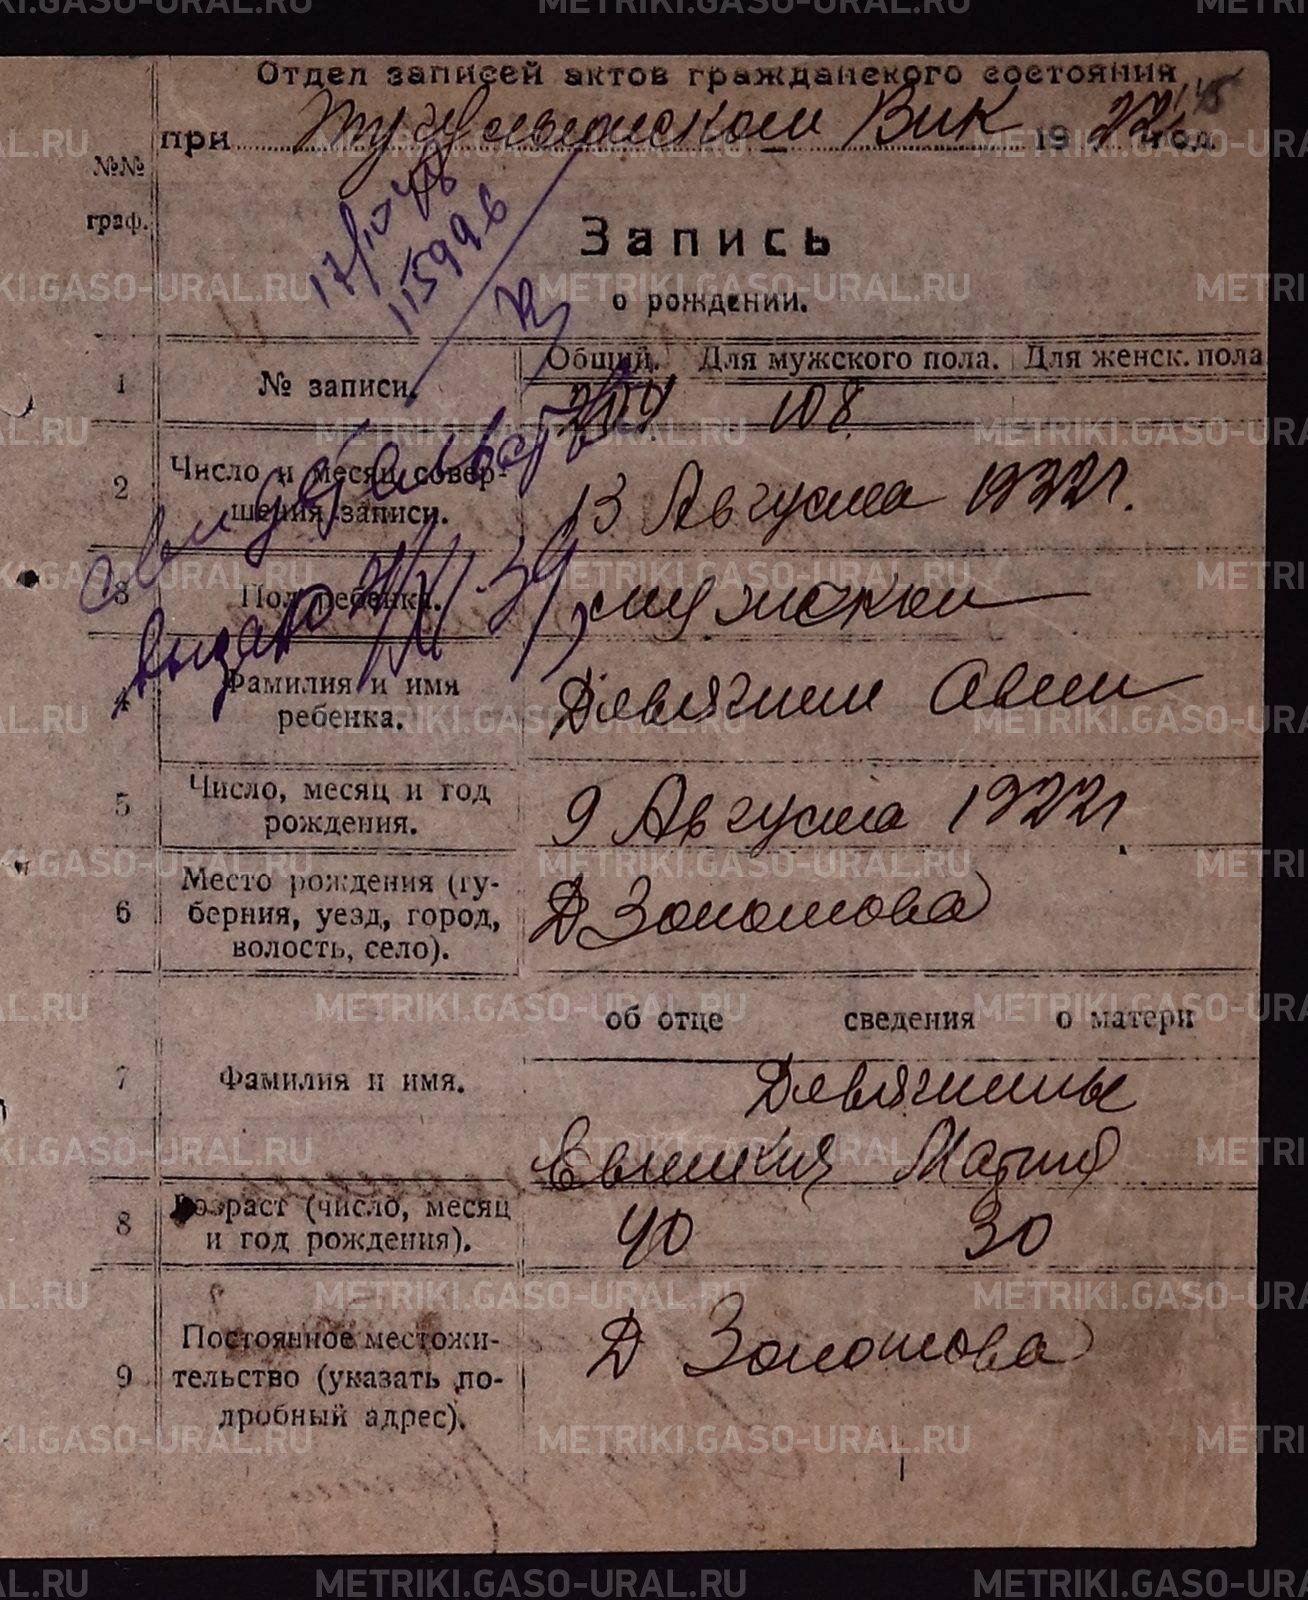 Отдел записей актов гражданского состояния
при Тугулымском Вик 1922 год.
№№
граф.
17/IV 48
115996
Запись
о рождении.
1 № записи. Общий. Для мужского пола. Для женск. пола
209 108
2 Число и месяц совер-
шения записи. 13 Августа 1922 г.
3 Пол ребенка. мужской
свидетельство
выдано
4 Фамилия и имя
ребенка. Девягин
5 Число, месяц и год
рождения. 9 Августа 1922 г
6 Место рождения (гу-
берния, уезд, город,
волость, село). Д Золотова
об отце сведения о матери
7 Фамилия и имя. Девягины
Мария
8 Возраст (число, месяц
и год рождения). 40 30
9 Постоянное местожи-
тельство (указать по-
дробный адрес). Д Золотова
METRIKI.GASO-URAL.RU